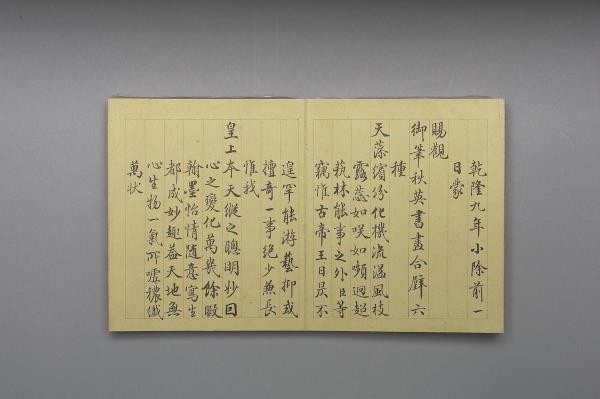 乾隆九年小除前一
日蒙
賜觀
御筆秋英書畫合璧六
種
天藻繽紛化機流溢風枝
露蕊如咲如嚬迥超
藝林能事之外臣等
竊惟古帝王日昃不
遑罕能游藝抑或
擅奇一事絕少兼長
惟我
皇上本天縱之聰明妙曰
心之變化萬幾餘暇
翰墨怡情隨意寫生
都成妙趣蓋天地無
心生物一氣所噓穠纖
萬狀